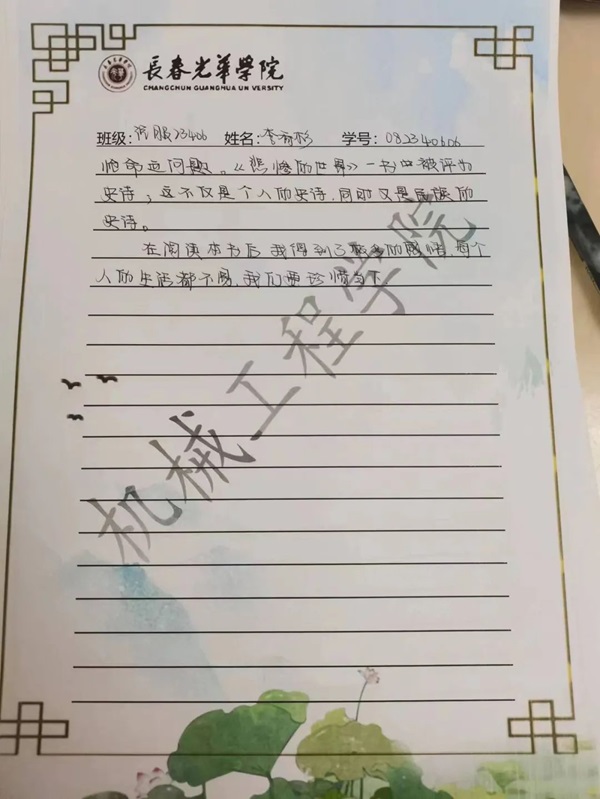 長春光華學院
CHANGCHUN GUANGHUA UN VERSITY
班级: 服23406 姓名: 李 彬 学号: 082340606
他命运问题。《悲惨的世界》一书也被评为
史诗；这不仅是个人的史诗,同时又是民族的
史诗。
在阅读本书后我得到了 的感悟,每个
人的生活都不易,我们要珍惜当下
机械工程学院